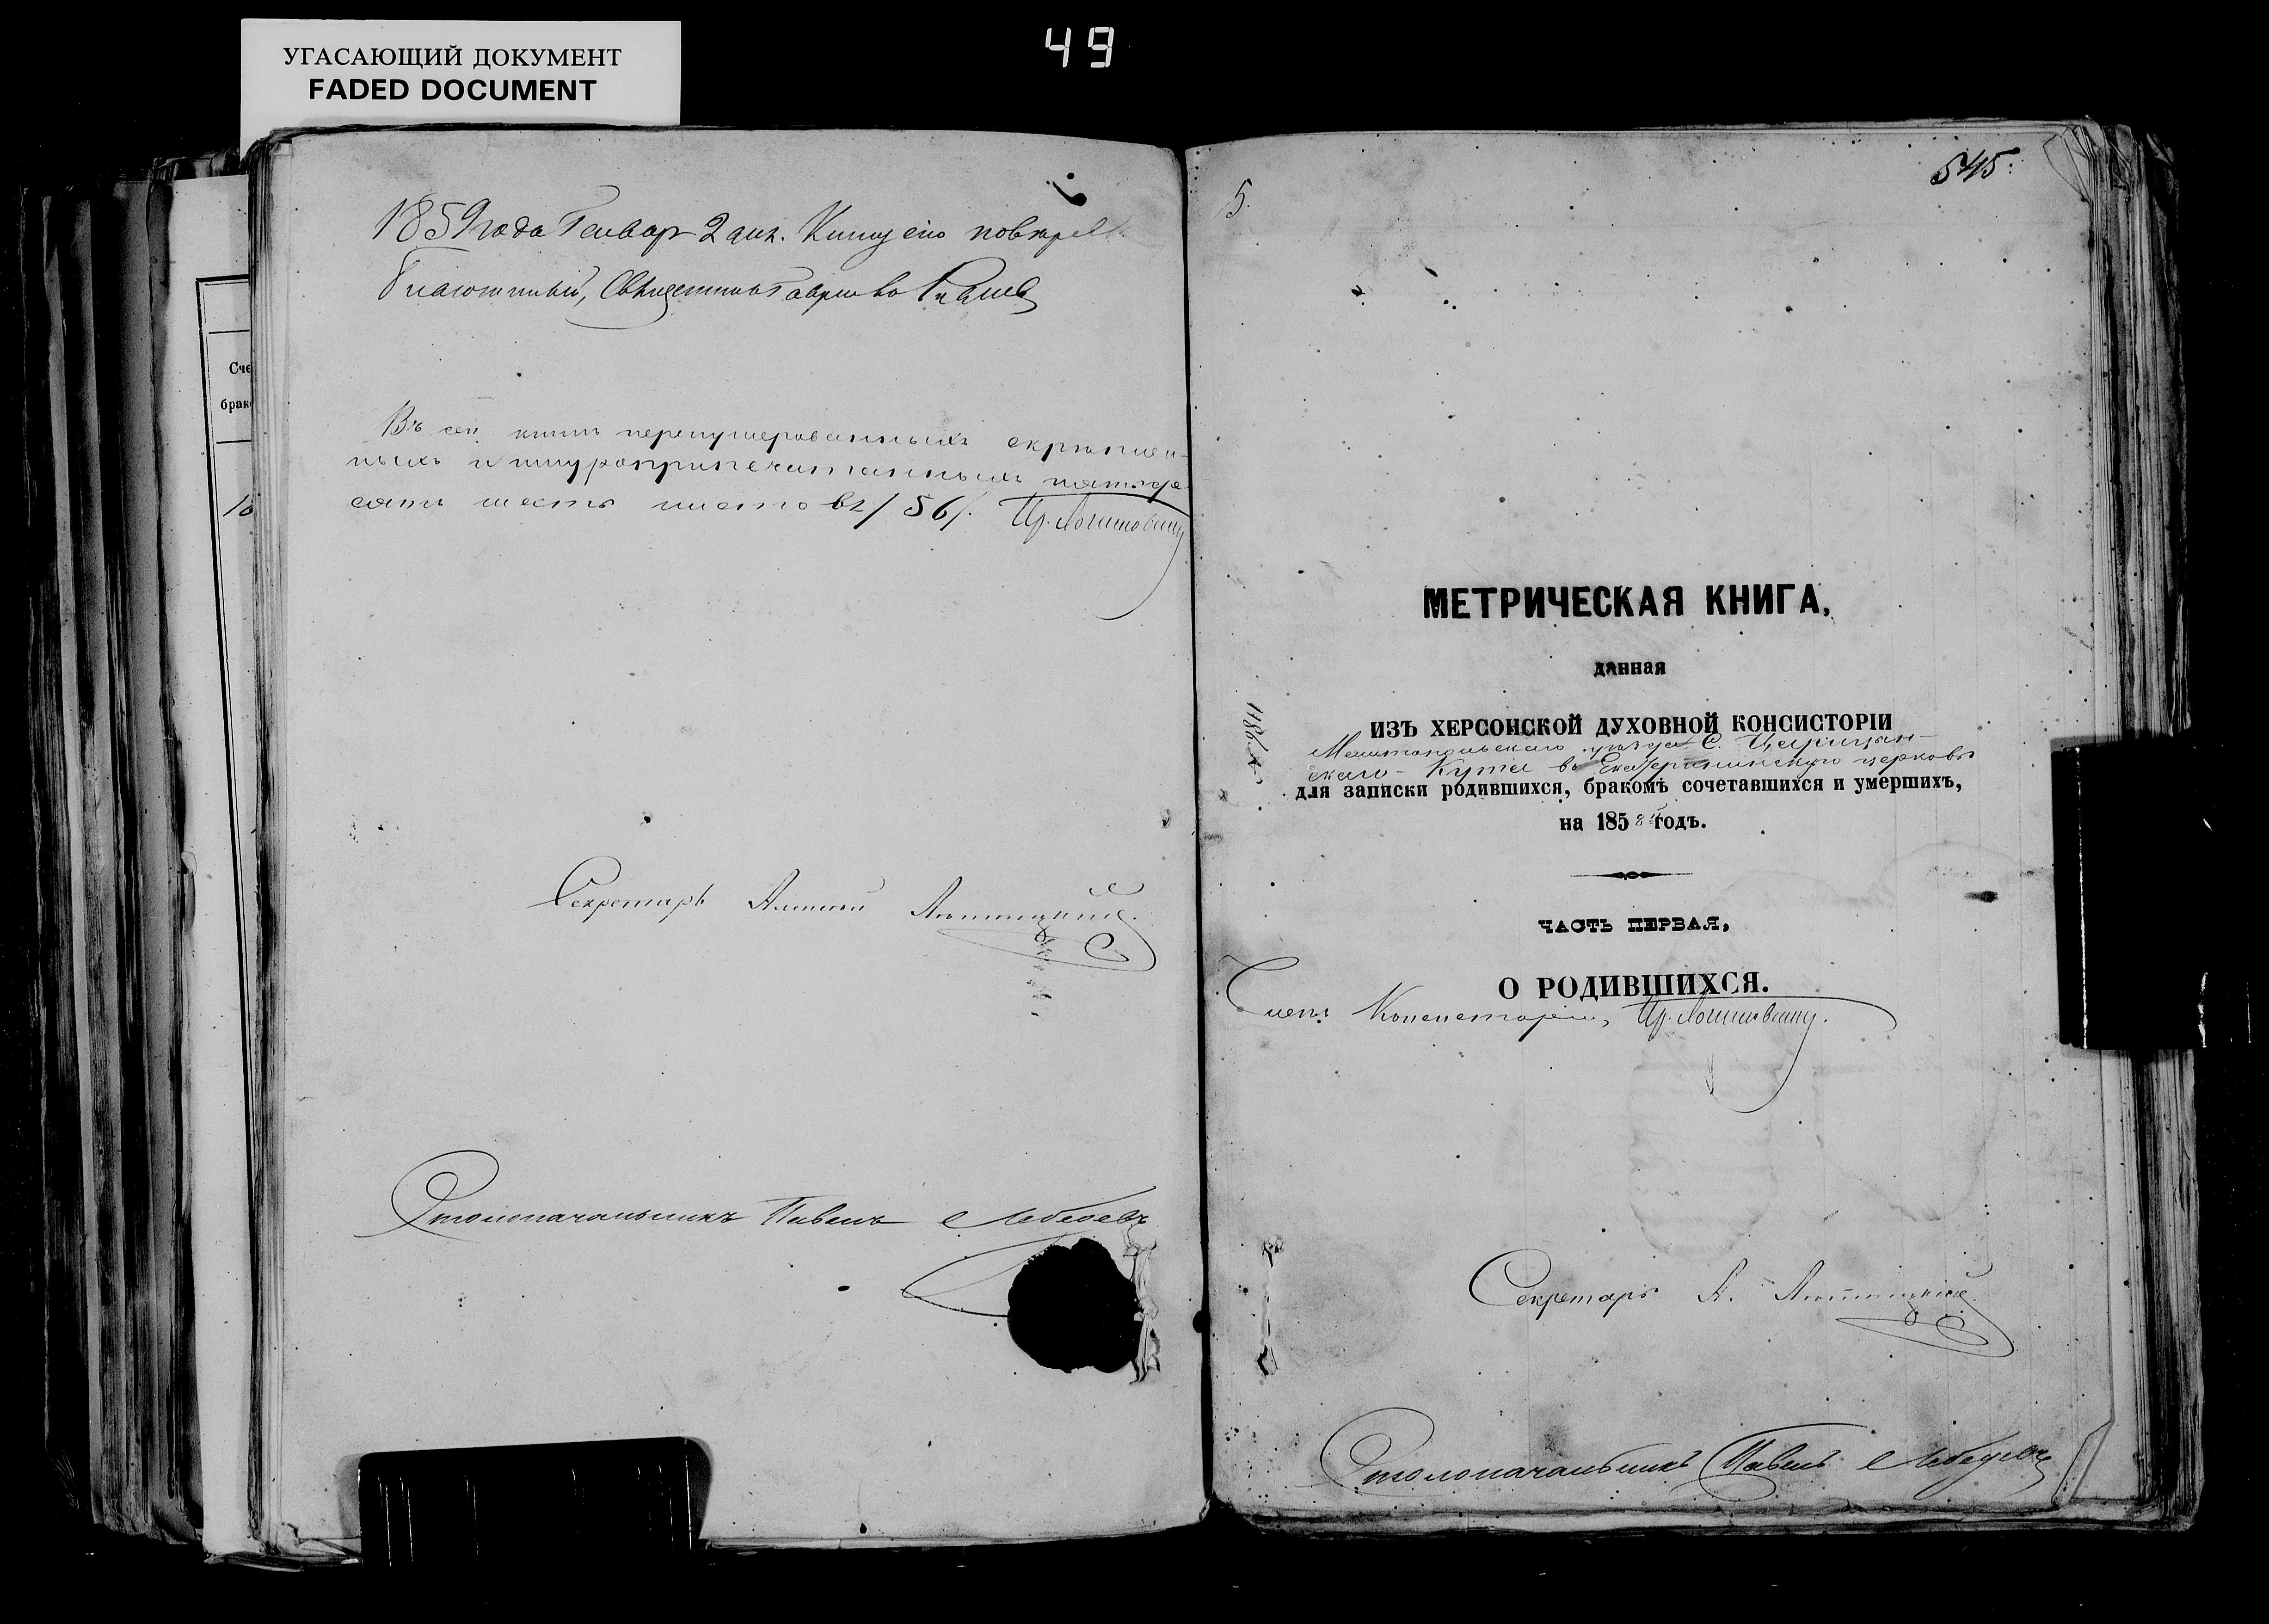 УГАСАЮЩИЙ ДОКУМЕНТ
FADED DOCUMENT
49
Сче
брако
1859 года Генвар 2 дня. Книгу сію повѣрял
Благочинный, Священник Гавриил
Въ сей книгѣ перенумерованныхъ скрѣплен-
ныхъ и шнуроприпечатанныхъ пятьде-
сятъ шесть листовъ /56/.
Секретарь Алексѣй
Столоначальникъ Павелъ Лебедевъ
5.
545.
МЕТРИЧЕСКАЯ КНИГА,
данная
ИЗЪ ХЕРСОНСКОЙ ДУХОВНОЙ КОНСИСТОРІИ
Мелитопольскаго уѣзда С. Царицын-
скаго-Кута въ Екатерининскую церковь
для записки родившихся, бракомъ сочетавшихся и умершихъ,
на 1858й годъ.
ЧАСТЬ ПЕРВАЯ,
О РОДИВШИХСЯ.
Членъ Консисторіи,
Секретарь А.
Столоначальникъ Павелъ Лебедевъ